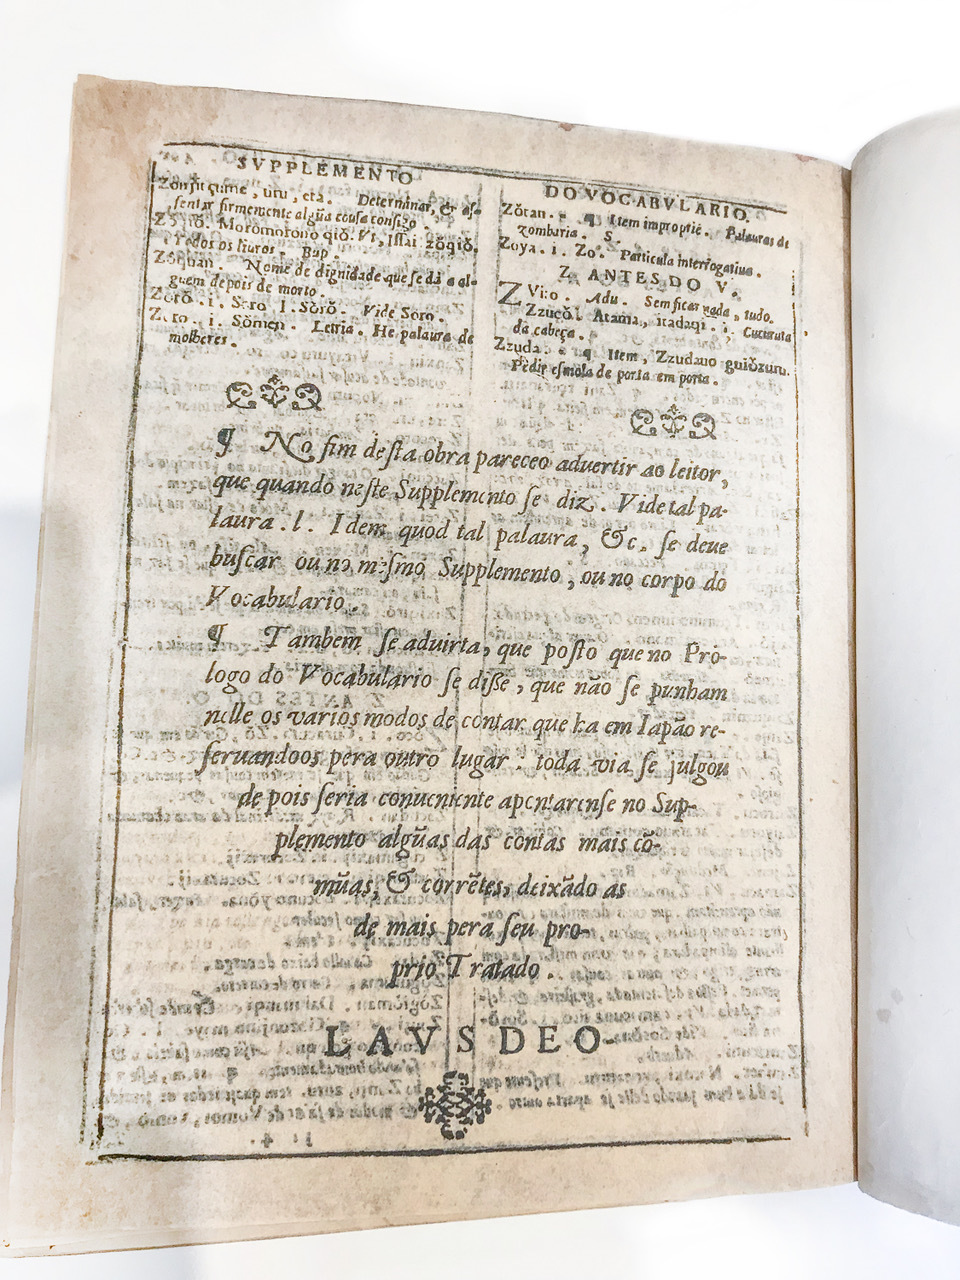 SVPPLEMENTO
DO VOCABVLARIO.
uru, eta. Determinar, & as-
sentar firmemente algũa cousa consigo.
Moromorono qiŏ. Vt, Issai zŏqiŏ.
Todos os liuros. Bup.
Zŏquan. Nome de dignidade que se dà a al-
guem depois de morto.
Zorŏ. i. Soro l. Sŏrŏ. Vide Soro.
Zoro, i. Sŏmen. Letria. He palaura de
molheres.
Zŏtan. ¶ Item improprie. Palauras de
zombaria. S.
Zoya. i. Zo. Particula interrogatiua.
Z ANTES DO V.
Adu. Sem ficar nada, tudo.
Atama, itadaqi. i. Cucuruta
da cabeça.
Zzuda. ¶ Item, Zzudauo guiŏzuru.
Pedir esmola de porta em porta.
¶ No fim desta obra pareceo aduertir ao leitor,
que quando neste Supplemento se diz. Vide tal pa-
laura. l. Idem quod tal palaura, &c. se deue
buscar ou no mesmo Supplemento, ou no corpo do
Vocabulario.
¶ Tambem se aduirta, que posto que no Pro-
logo do Vocabulario se disse, que não se punham
nelle os varios modos de contar que ha em Iapão re-
seruandoos pera outro lugar: toda via se julgou
de pois seria conueniente apontarense no Sup-
plemento algũas das contas mais cõ-
mũas, & corrẽtes, deixãdo as
de mais pera seu pro-
prio Tratado.
LAVS DEO.